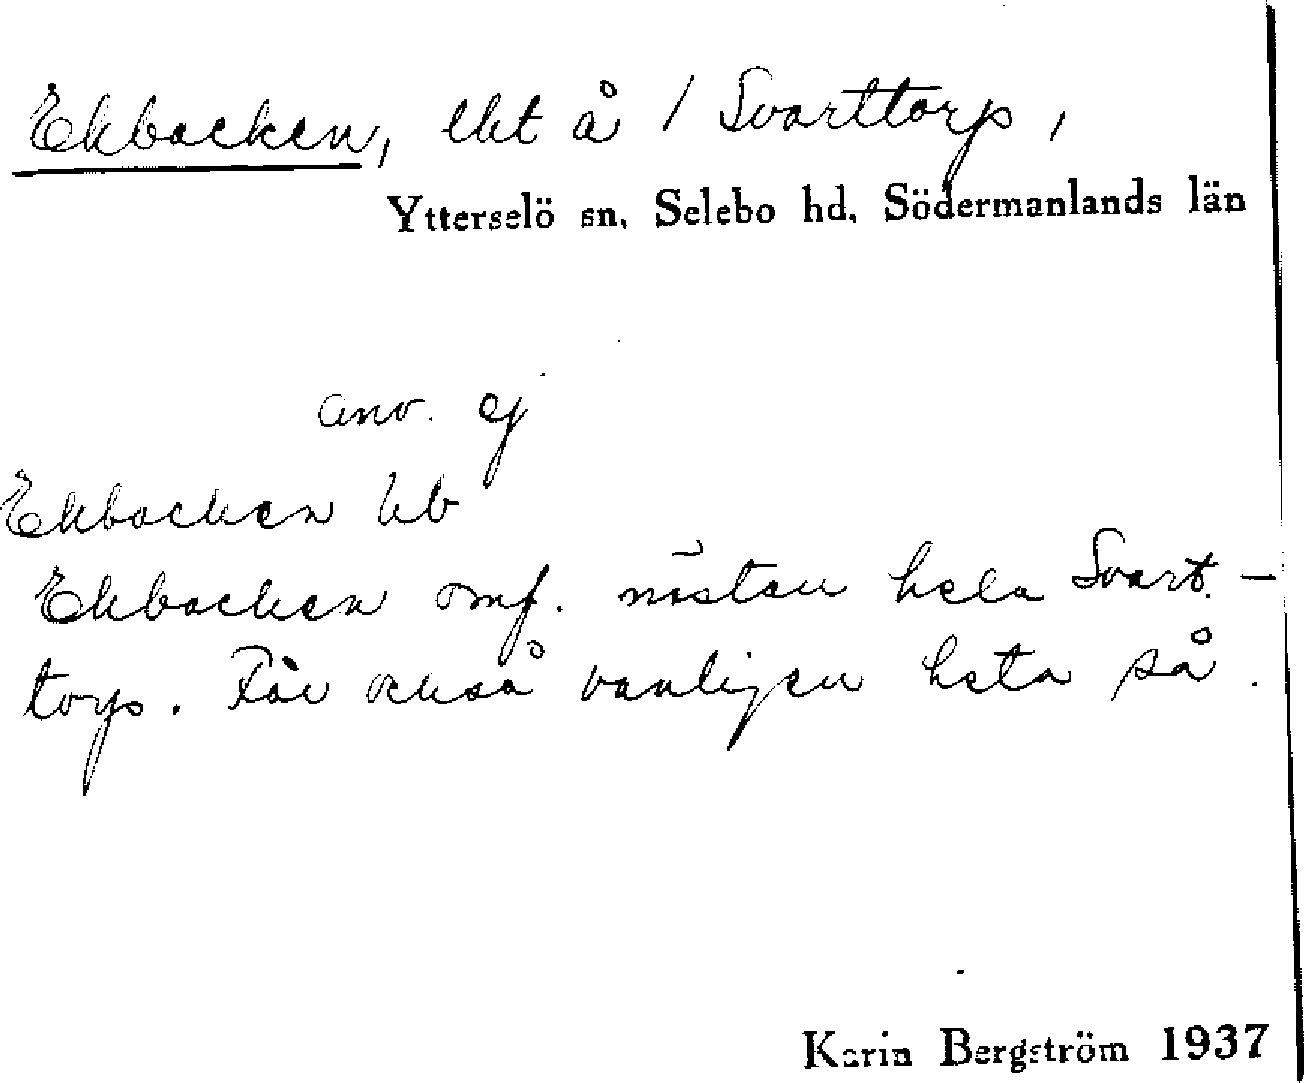 Ekbacken, lht å 1 Svarttorp,
Ytterselö sn, Selebo hd, Södermanlands län
anv. ej
Ekbacken
Ekbacken omf. nästan hela Svart-
torp. Får också vanligen heta så.
Karin Bergström 1937